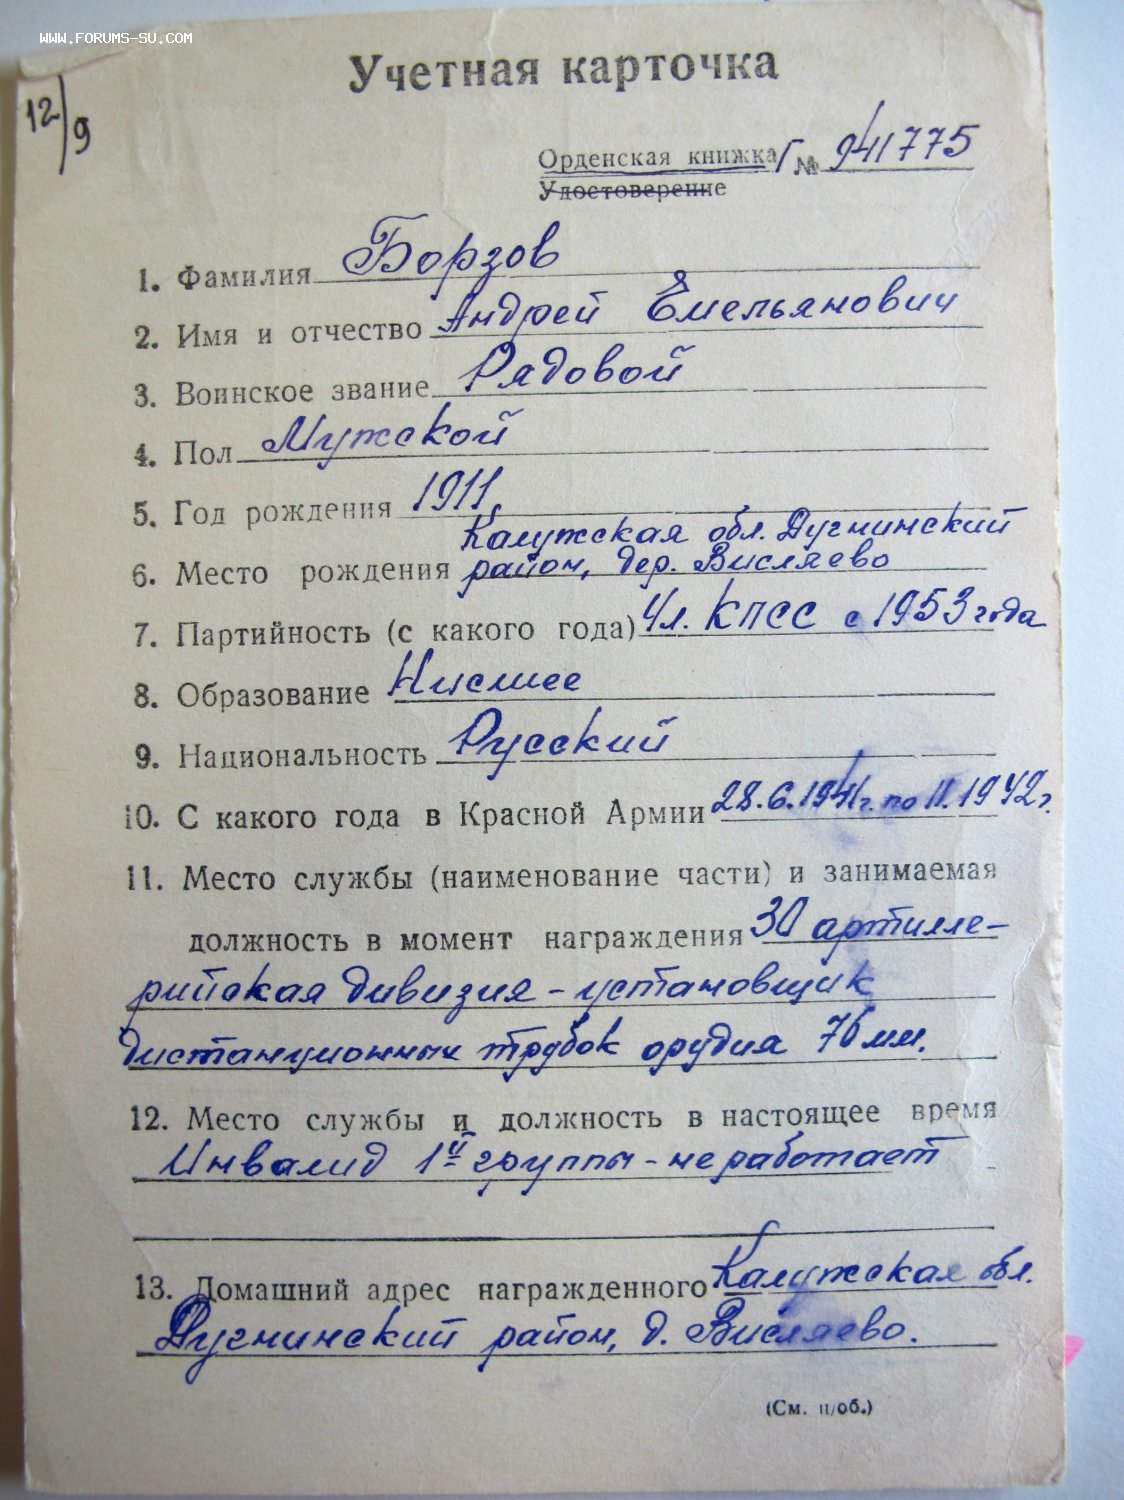 WWW.FORUMS-SU.COM
Учетная карточка
12/9
Орденская книжка Г № 941775
Удостоверение
1. Фамилия Борзов
2. Имя и отчество Андрей Емельянович
3. Воинское звание Рядовой
4. Пол Мужской
5. Год рождения 1911.
Калужская обл. Дугнинский
6. Место рождения район, дер. Висляево
7. Партийность (с какого года) Чл. КПСС с 1953 года
8. Образование Нисшее
9. Национальность Русский
10. С какого года в Красной Армии 28.6.1941г. по 11.1942г.
11. Место службы (наименование части) и занимаемая
должность в момент награждения 30 артилле-
рийская дивизия - установщик
дистанционных трубок орудия 76 мм.
12. Место службы и должность в настоящее время
Инвалид 1й группы - не работает
13. Домашний адрес награжденного Калужская обл.
Дугнинский район, д. Висляево.
(См. н/об.)